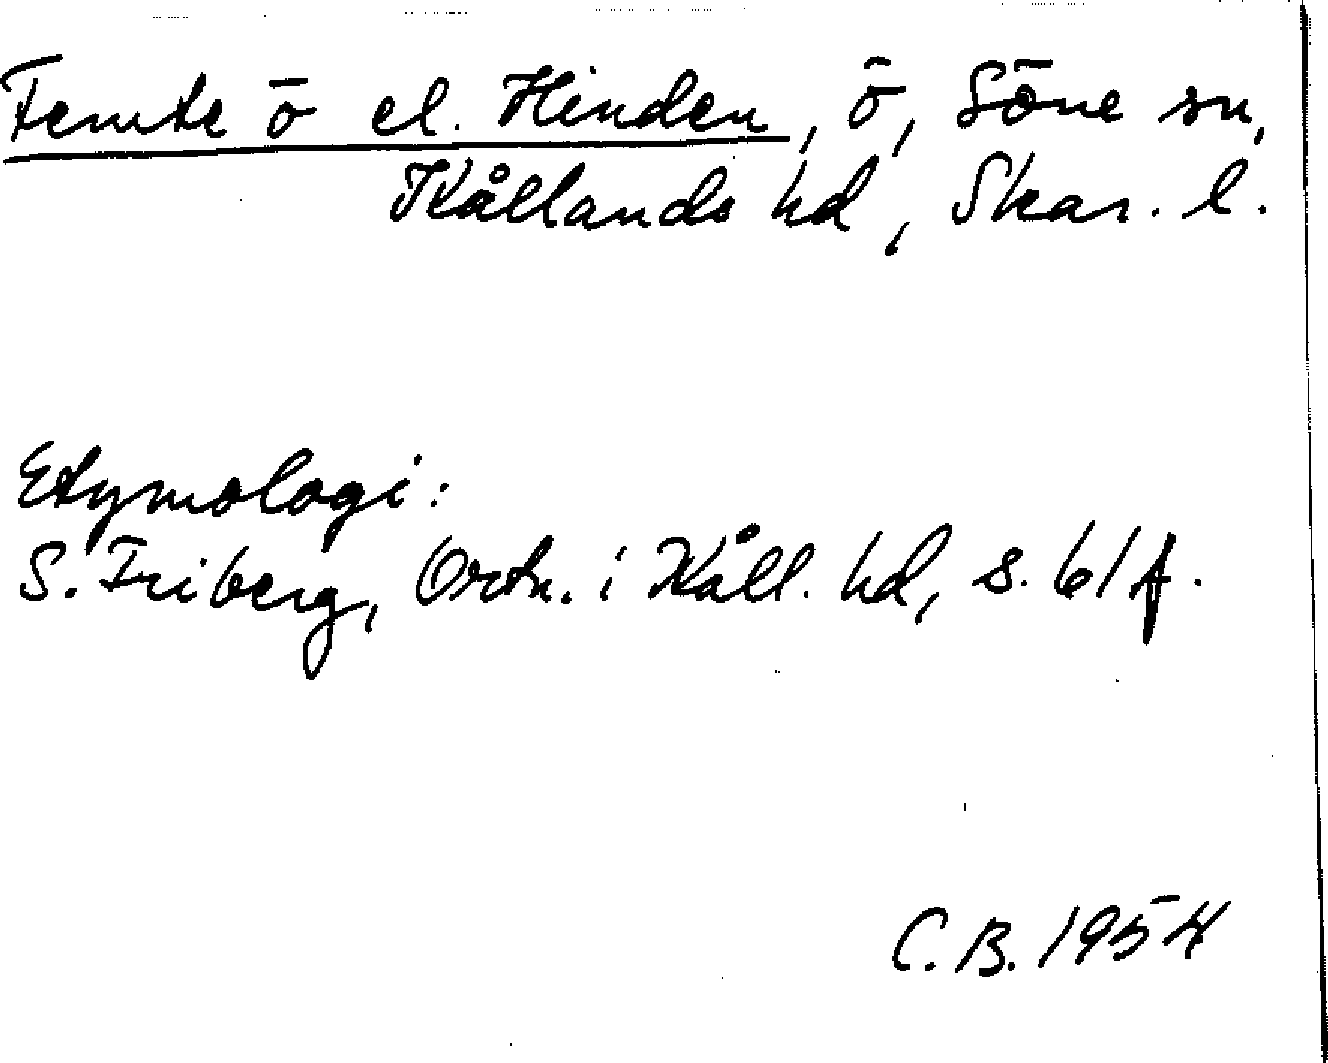 Femte ö el. Hinden, ö, Söne sn,
Kållands hd, Skar. l.
Etymologi:
S. Friberg, Ortn. i Kåll. hd, s. 61 f.
C.B. 1954